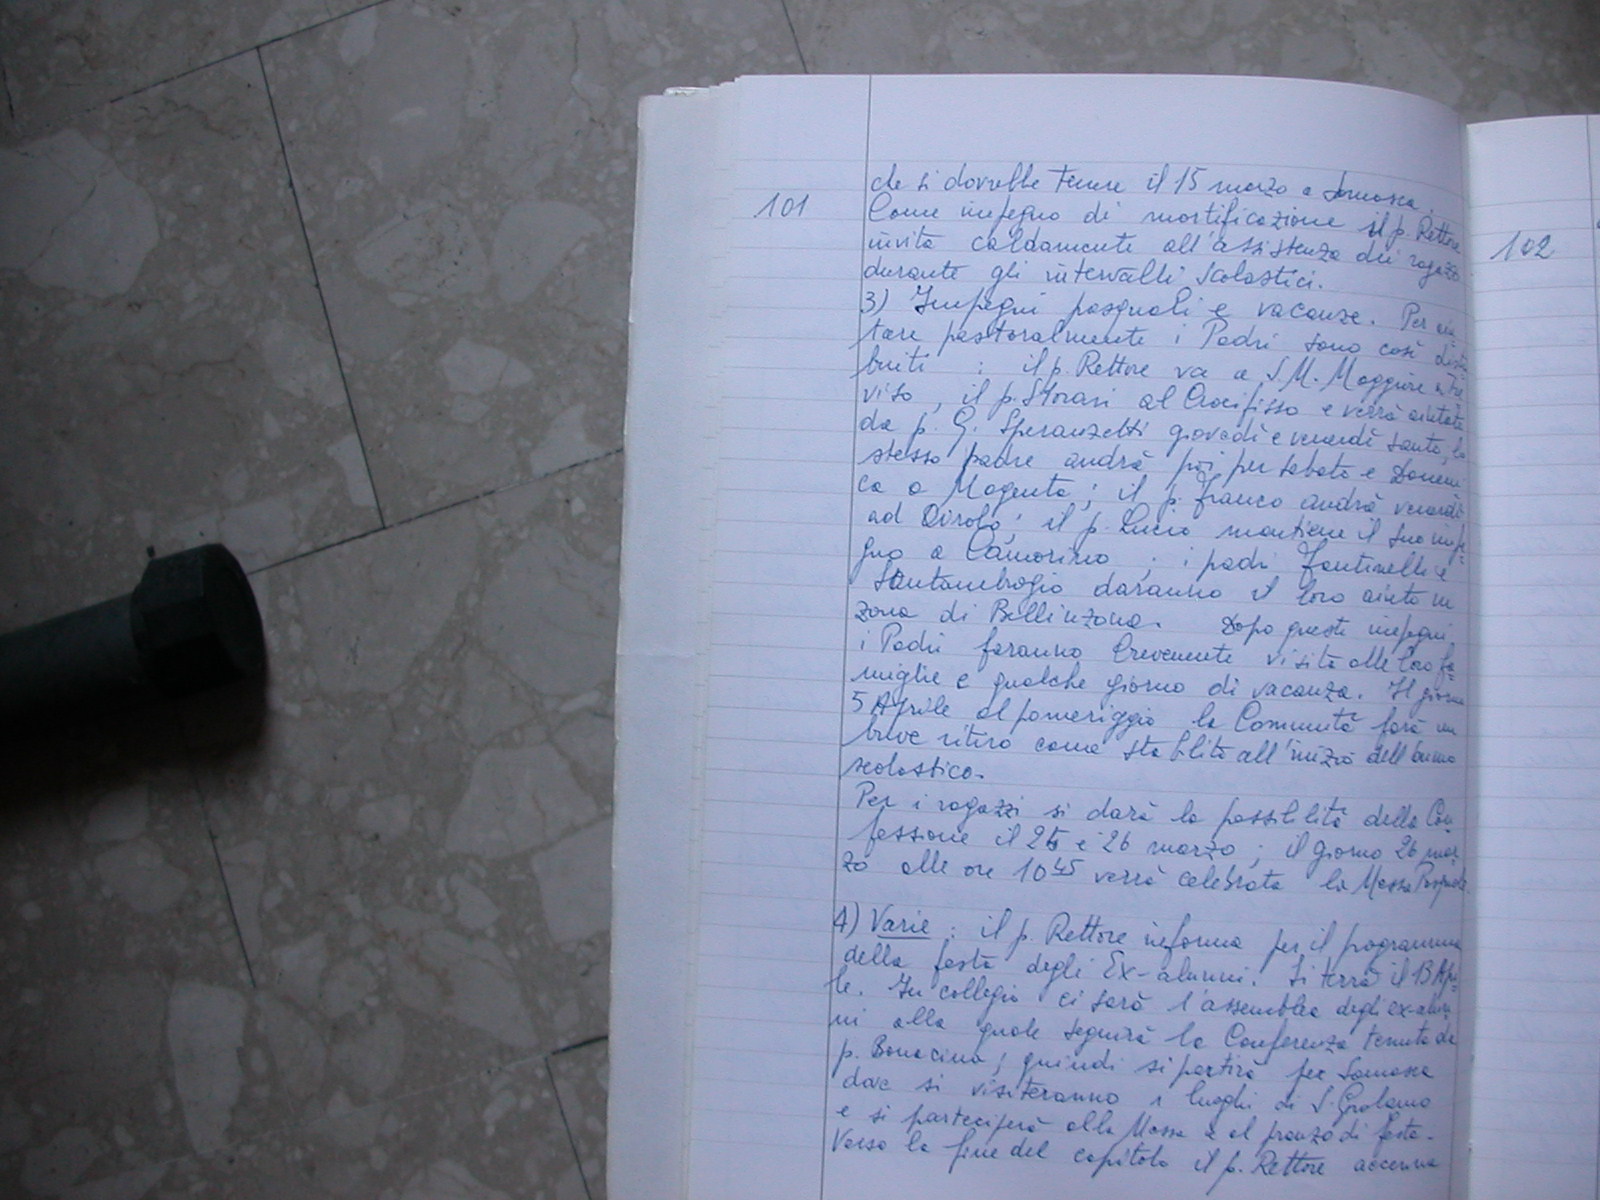 101
che si dovrebbe tenere il 15 marzo a Somasca.
Come impegno di mortificazione il p. Rettore
invita caldamente all'assistenza dei ragazzi
durante gli intervalli scolastici.
3) Impegni pasquali e vacanze. Per aiu-
tare pastoralmente i Padri sono così distri-
buiti : il p. Rettore va a S. M. Maggiore a Tre
viso, il p. Storari al Crocifisso e verrà aiutato
da p. G. Speranzetti giovedì e venerdì santo, lo
stesso padre andrà poi per sabato e Domeni
ca a Magenta; il p. Franco andrà venerdì
ad Airolo; il p. Lucio mantiene il suo impe-
gno a Camorino; i padri Fantinelli e
Santambrogio daranno il loro aiuto in
zona di Bellinzona. Dopo questi impegni
i Padri faranno brevemente visita alle loro fa-
miglie e qualche giorno di vacanza. Il giorno
5 Aprile al pomeriggio la Comunità farà un
breve ritiro come stabilito all'inizio dell'anno
scolastico.
Per i ragazzi si darà la possibilità della Con
fessione il 25 e 26 marzo; il giorno 26 mar-
zo alle ore 10 45 verrà celebrata la Messa Pasquale.
4) Varie : il p. Rettore informa per il programma
della festa degli Ex-alunni. Si terrà il 13 Apri-
le. In collegio ci sarà l'assemblea degli ex-alun
ni alla quale seguirà la Conferenza tenuta da
p. Bonacina; quindi si partirà per Somasca
dove si visiteranno i luoghi di S. Girolamo
e si parteciperà alla Messa e al pranzo di festa.
Verso la fine del capitolo il p. Rettore accenna
102